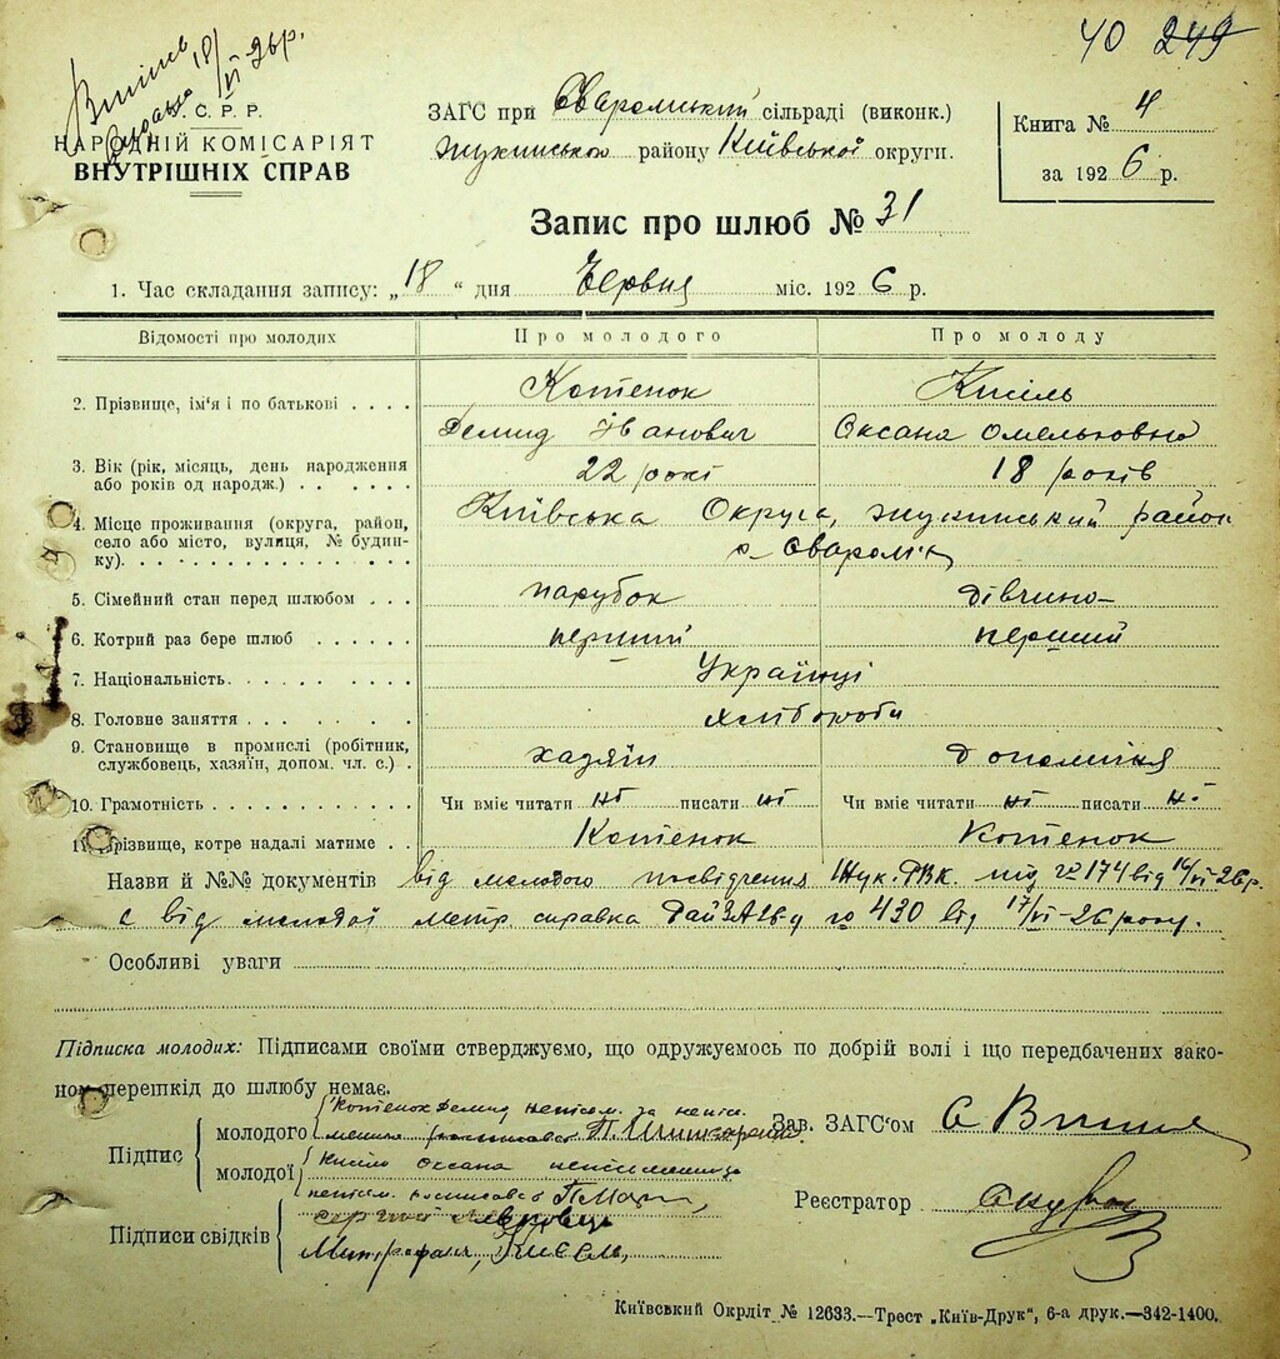 40 249
18/VI 26р.
С. Р. Р.
НАРОДНІЙ КОМІСАРІЯТ
ВНУТРІШНІХ СПРАВ
ЗАГС при Сваромській сільраді (виконк.)
району Київської округи.
Книга № 4
за 1926 р.
Запис про шлюб № 31
1. Час складання запису: „18“ дня Червня міс. 1926 р.
Відомості про молодих
Про молодого
Про молоду
2. Прізвище, ім'я і по батькові
Котенок
Кисіль
Демид Іванович
Оксана Омельковна
3. Вік (рік, місяць, день народження
або років од народж.)
22 рокі
18 років
4. Місце проживання (округа, район,
село або місто, вулиця, № будин-
ку).
Київська Округа, жукинський район
с. Сваромʼя
5. Сімейний стан перед шлюбом
парубок
дівчино
6. Котрий раз бере шлюб
перший
перший
7. Національність.
Українці
8. Головне заняття
хлібороби
9. Становище в промислі (робітник,
службовець, хазяїн, допом. чл. с.)
хазяїн
10. Грамотність
Чи вміє читати ні писати ні
Чи вміє читати ні писати ні
11. Прізвище, котре надалі матиме
Котенок
Котенок
Назви й №№ документів від молодого посвідчення Жук. РВК. під № 174 від 16/VI-26р.
є від молодої метр. справка РайЗАГС-у № 430 від 17/VI-26 року.
Особливі уваги
Підписка молодих: Підписами своїми стверджуємо, що одружуємось по добрій волі і що передбачених зако-
ном перешкід до шлюбу немає.
Підпис
молодого
Котенок Демид неписм. за непис.
молодої
Кисіль Оксана
Підписи свідків
Митрофан, Кисель,
Зав. ЗАГС'ом
Реєстратор
Київський Окрліт № 12633.—Трест „Київ-Друк“, 6-а друк.—342-1400.